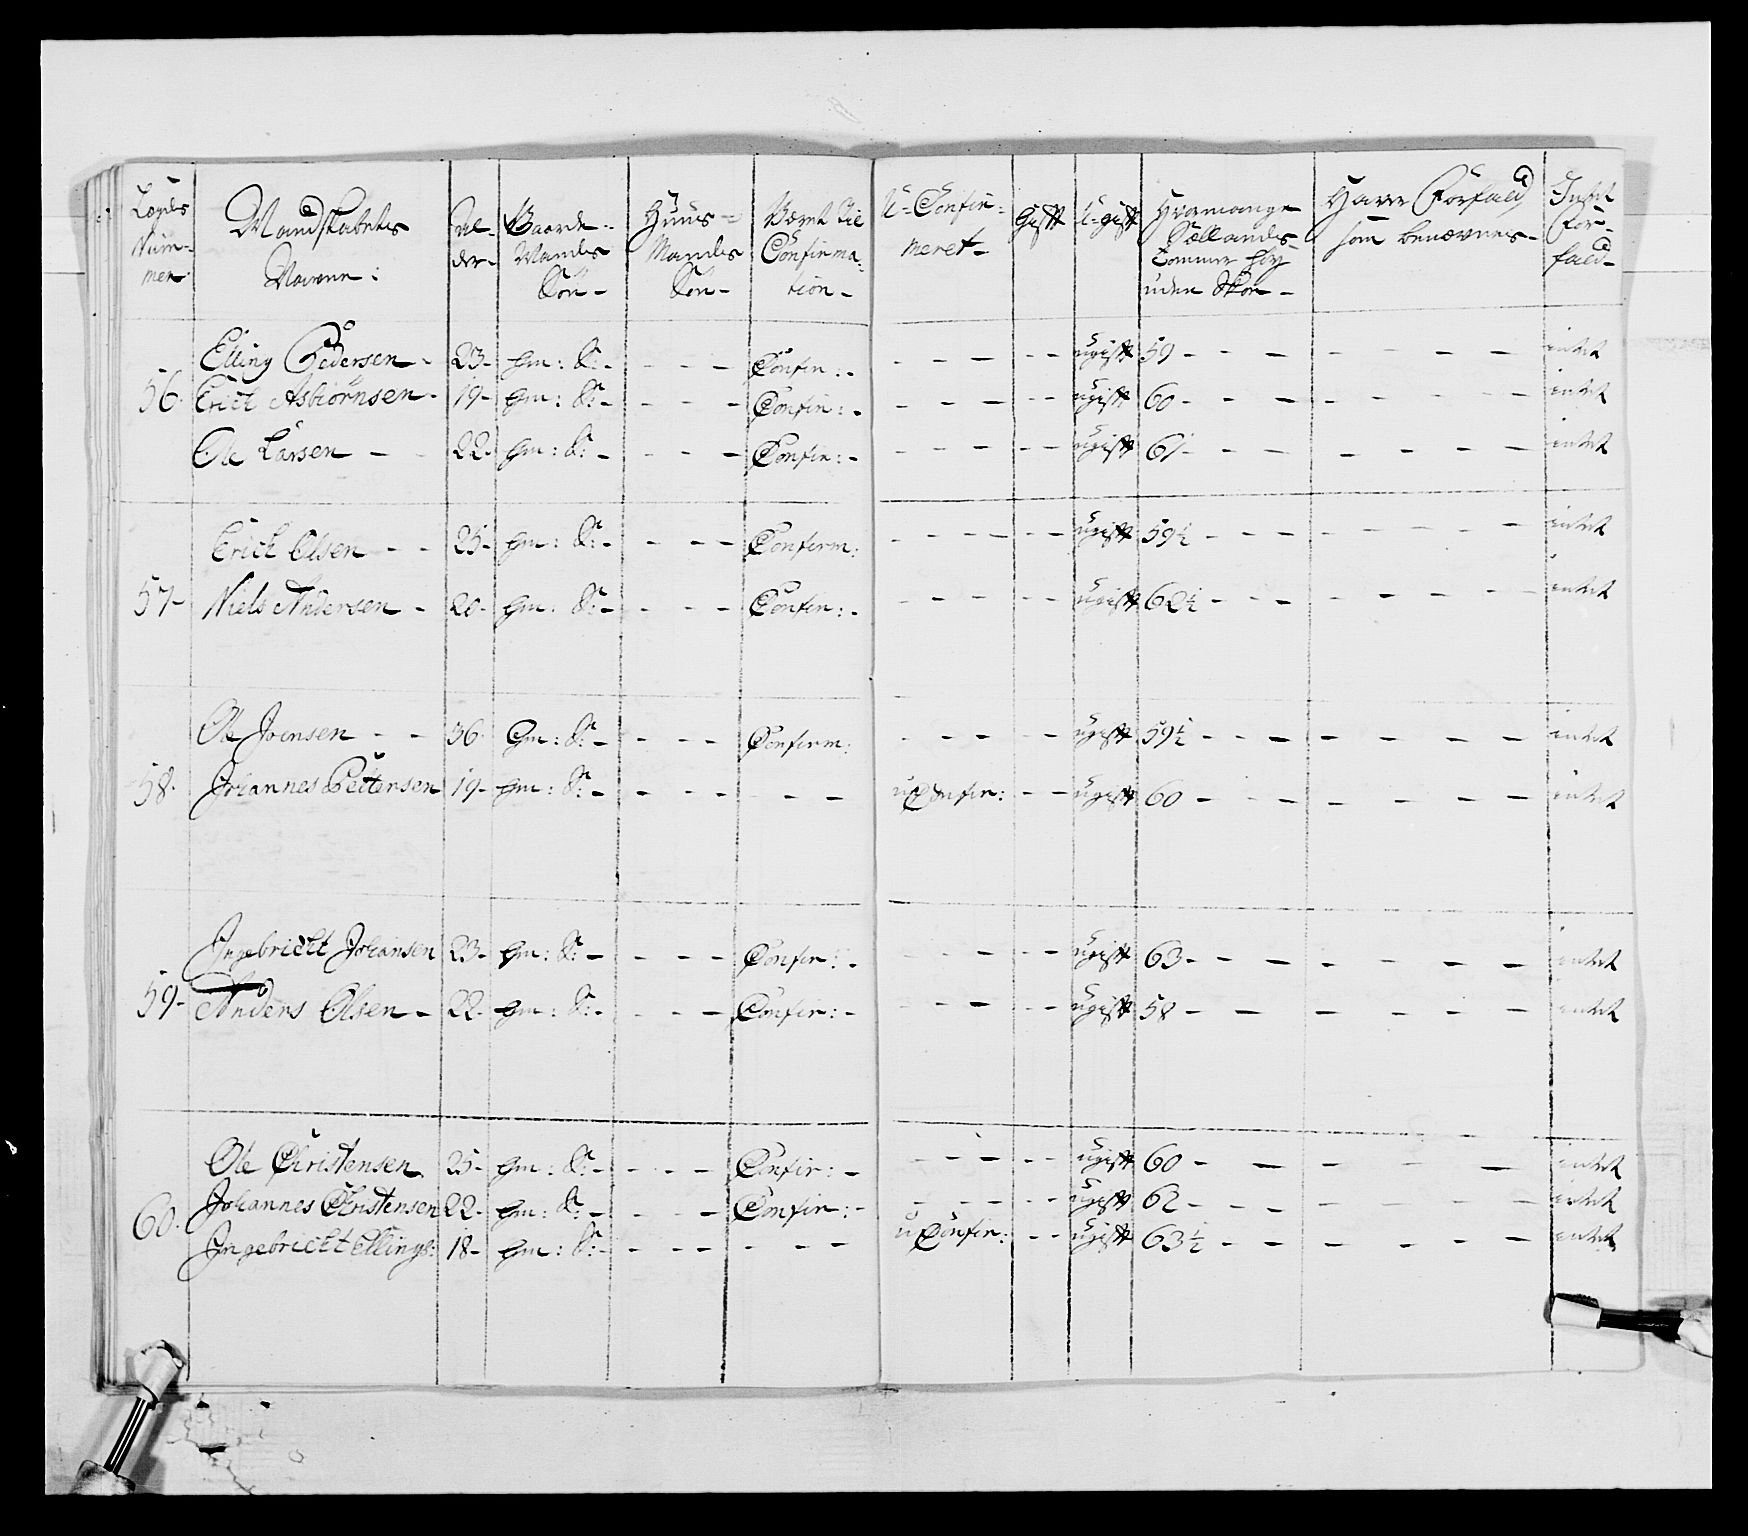 Lægds Num- mer | Mandskabetes Navne: | Al- der- | Gaarde- Mandes Sön- | Huus- Mandes Sön- | Været til Confirma- tion- | U-Confir- meret- | Gift | U-gift | Hvormange Sællandes Tommer høy uden Skoe- | Have Forfald som benævnes- | Intet For- fald-
Elling Pedersen - | 23- | gm: S:- | - - - | Confir:- | - - - | - - | ugift | 59 - - - | - - - - | intet
56. Erich Asbiörnsen - | 19- | gm: S:- | - - - | Confir:- | - - - | - - | ugift | 60 - - - | - - - - | intet
Ole Larsen - - | 22. | gm: S:- | - - - | Confir:- | - - - | - - | ugift | 61 - - - | - - - - | intet
Erich Olsen - - | 25- | gm: S:- | - - - | Conferm: | - - - - | - - | ugift | 59½ - - - | - - - - | intet
57- Niels Andersen - | 20- | gm: S:- | - - - | Confir:- | - - - | - - | ugift | 62½ - - - | - - - - | intet
Ole Joensen - - | 36 | Gm: S:- | - - - | Conferm: | - - - | - - | ugift | 59½ - - - | - - - - | intet
58. Johannes Peitersen | 19- | gm: S:- | - - - | - - - | uConfir: | - - | ugift | 60 - - - | - - - - | intet
Ingebricht Johansen | 23- | gm: S:- | - - - | Confir:- | - - - | - - | ugift | 63- - - | - - - - | intet
59- Anders Olsen - | 22- | gm: S:- | - - - | Confir:- | - - - | - - | ugift | 58 - - - | - - - - | intet
Ole Christensen | 25- | gm: S:- | - - - | Confir:- | - - - | - - | ugift | 60 - - | - - - | intet
60. Johannes Christensen | 22- | gm: S:- | - - - | Confir:- | - - - | - - | ugift | 62 - - - | - - - - | intet
Ingebricht Ellings: | 18- | gm: S:- | - - - | - - - | uConfir: | - - | ugift | 63½ - - - | - - - - | intet